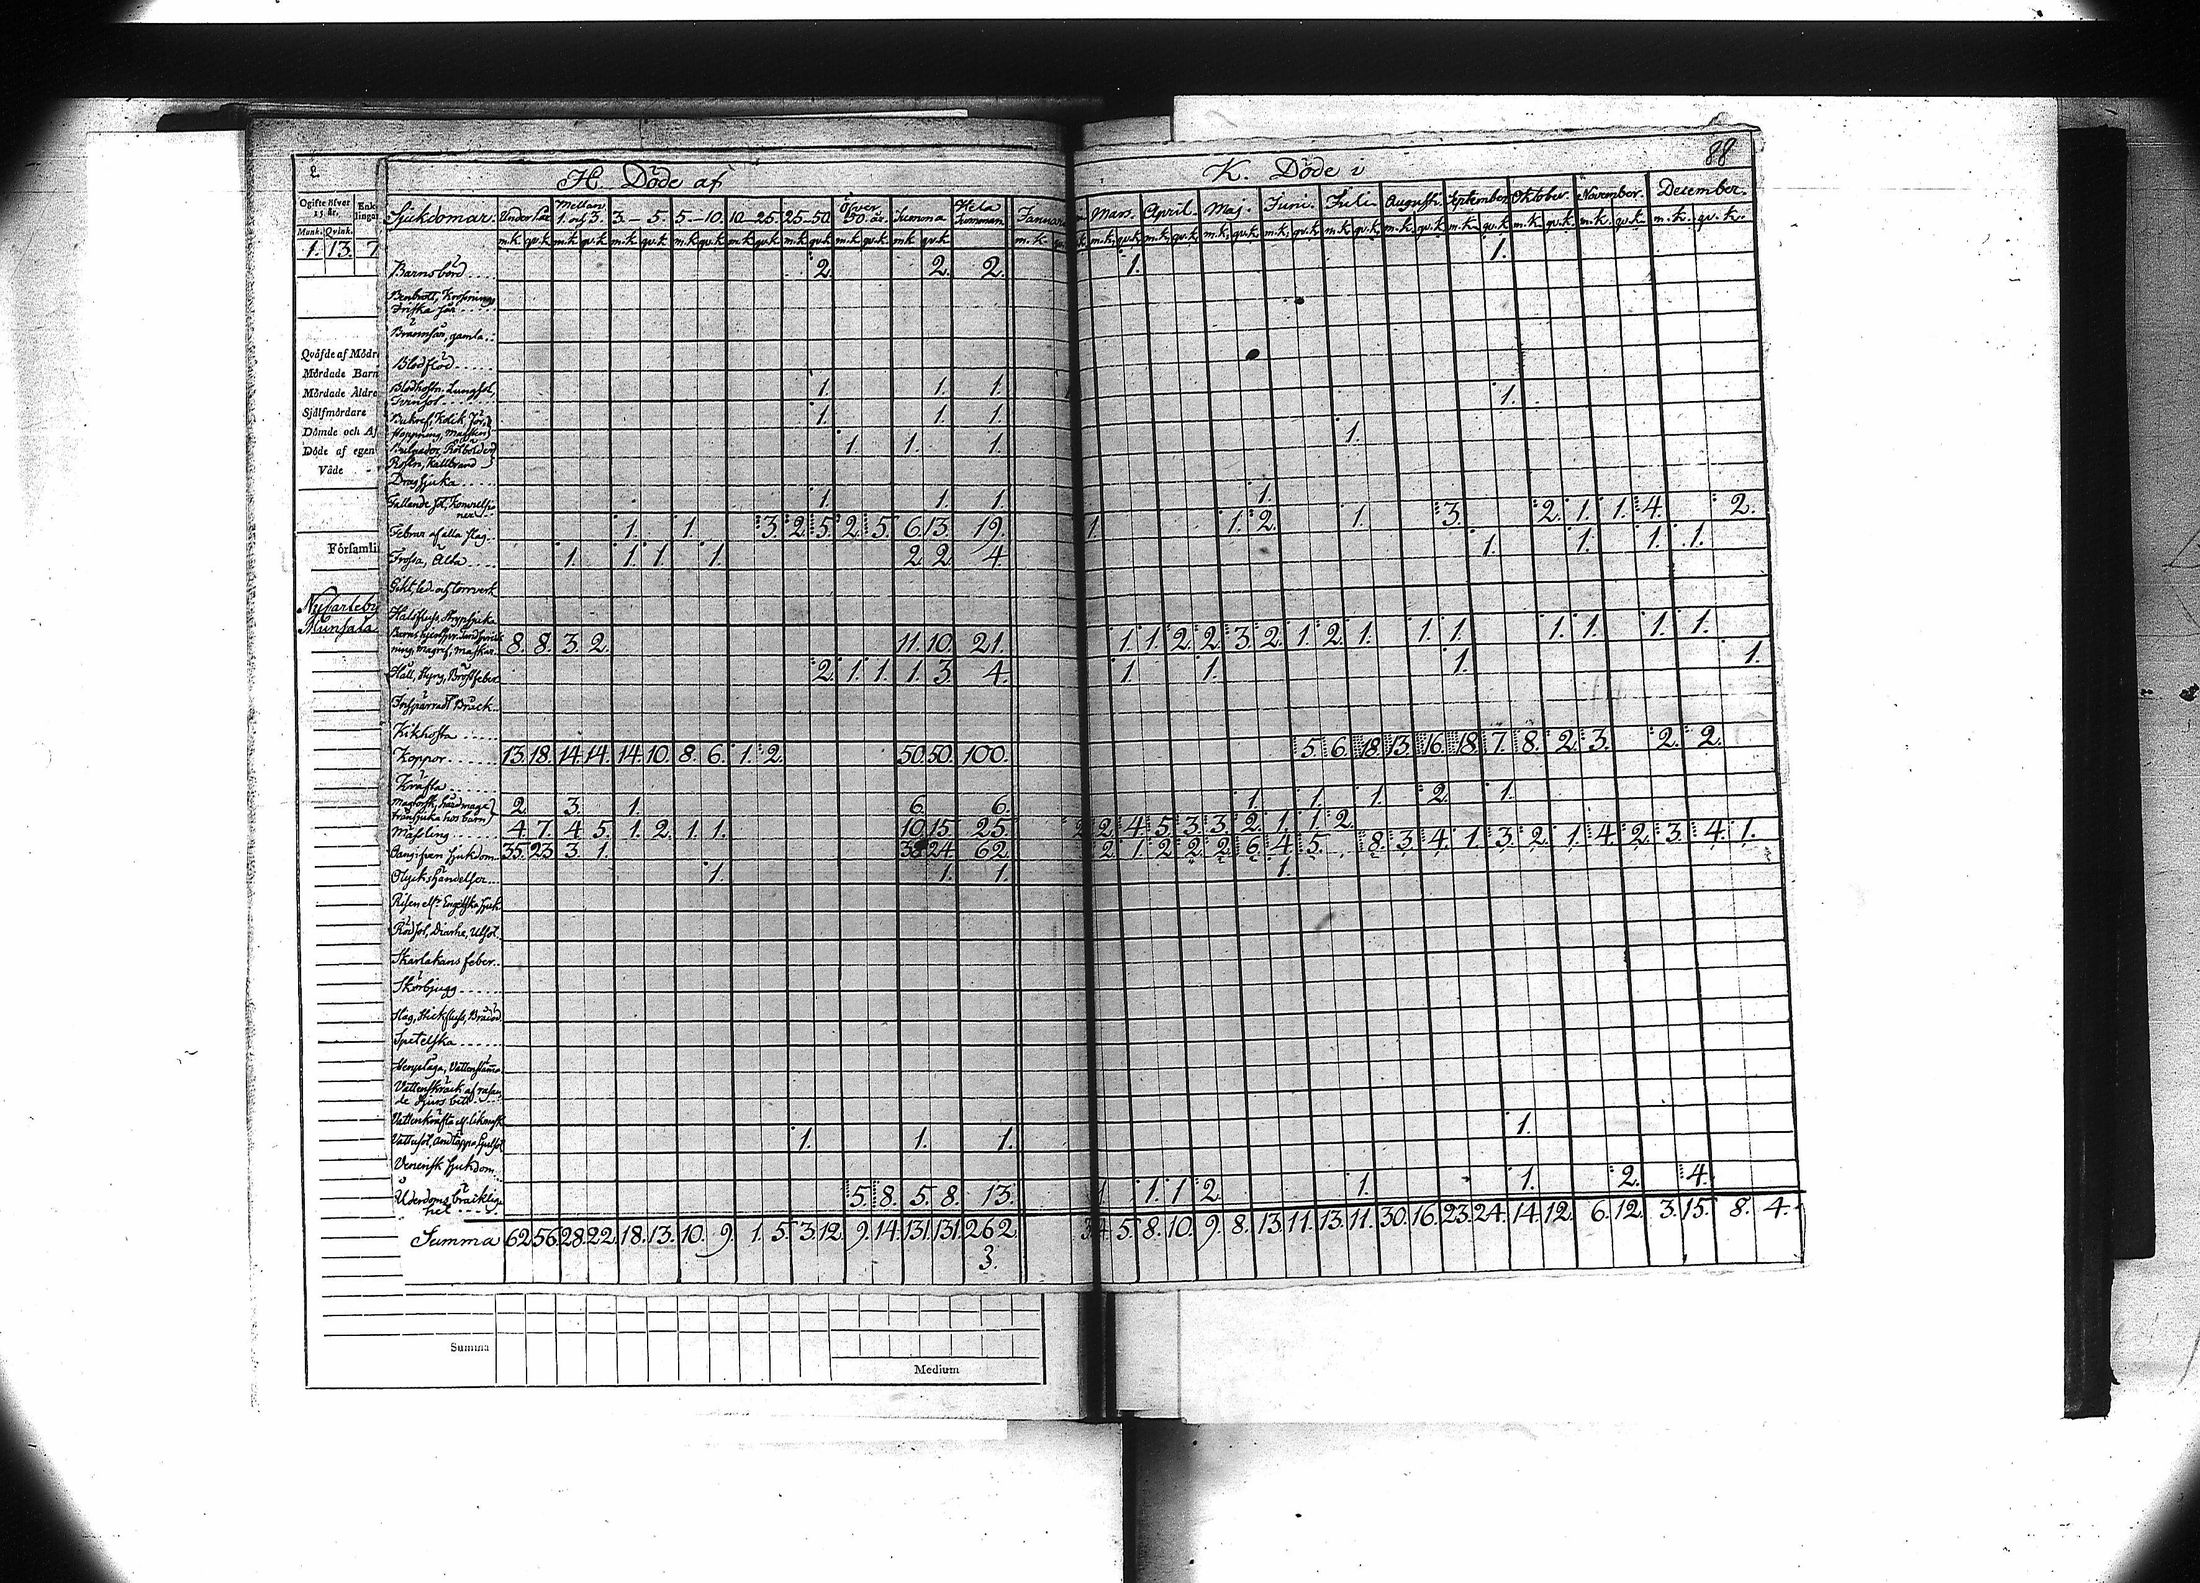 88
2
H. Döde af
K. Döde i
Ogifte öfver 15 år.
Mank. Qvink.
1. 13. 7
Sjukdomar. Under 1 år Mellan 1. och 3. 3.–5. 5.–10. 10–25. 25–50. Öfver 50 år. Summa Hela Summan Januari Mars. April. Maj. Juni. Juli. Augusti. September Oktober. November. December.
m.k. qv.k. m.k. qv.k. m.k. qv.k. m.k. qv.k. m.k. qv.k. m.k. qv.k. m.k. qv.k. m.k. qv.k.
Barnsbörd 2. 2. 2. 1. 1.
Brännsår, gamla
Blodflöd
Blodhosta. Lungsot, 1. 1. 1. 1.
Tvinsot
Bukref, Kolik 1. 1. 1.
1. 1. 1. 1.
Rosen, Kallbrand
Dragsjuka
Fallande sot, 1. 1. 1. 1.
Febrar af alla slag 1. 1. 3. 2. 5. 2. 5. 6. 13. 19. 1. 1. 2. 1. 3. 2. 1. 1. 4. 2.
Frossa, Älta 1. 1. 1. 1. 2. 2. 4. 1. 1. 1. 1.
Gikt, led och torrverk
Halsfluss, Strypsjuka
8. 8. 3. 2. 11. 10. 21. 1. 1. 2. 2. 3. 2. 1. 2. 1. 1. 1. 1. 1. 1. 1.
Håll, Styng, Bröstfeber 2. 1. 1. 1. 3. 4. 1. 1. 1. 1.
Inspärradt Bråck
Kikhosta
Koppor 13. 18. 14. 14. 14. 10. 8. 6. 1. 2. 50. 50. 100. 5. 6. 18. 13. 16. 18. 7. 8. 2. 3. 2. 2.
Kräfta
2. 3. 1. 6. 6. 1. 1. 1. 2. 1.
Mäsling 4. 7. 4. 5. 1. 2. 1. 1. 10. 15. 25. 2. 2. 4. 5. 3. 3. 2. 1. 1. 2.
Oangifven sjukdom 35. 23. 3. 1. 38. 24. 62. 2. 1. 2. 2. 2. 6. 4. 5. 8. 3. 4. 1. 3. 2. 1. 4. 2. 3. 4. 1.
Olyckshändelser 1. 1. 1. 1.
Risen ell. Engelska sjuk
Rödsot, Diarhe, Utsot
Skarlakans feber
Skörbjugg
Slag, Stickfluss, Bråddöd
Spetelska
Stenplåga, Vattenstämma
Vattenskräck af rasan
de djurs bett
Vattusot, andtäppa, Gulsot 1. 1. 1. 1.
Venerisk sjukdom
Ålderdoms bräcklig
het 5. 8. 5. 8. 13. 1. 1. 1. 2. 1. 1. 2. 4.
Summa 62. 56. 28. 22. 18. 13. 10. 9. 1. 5. 3. 12. 9. 14. 131. 131. 262. 5. 8. 10. 9. 8. 13. 11. 13. 11. 30. 16. 23. 24. 14. 12. 6. 12. 3. 15. 8. 4.
3.
Qväfde af Mödr
Mördade Barn
Mördade Äldre
Sjelfmördare
Dömde och Af
Döde af egen
Våde
Församli
Nykarleby
Munsala
Summa
Medium